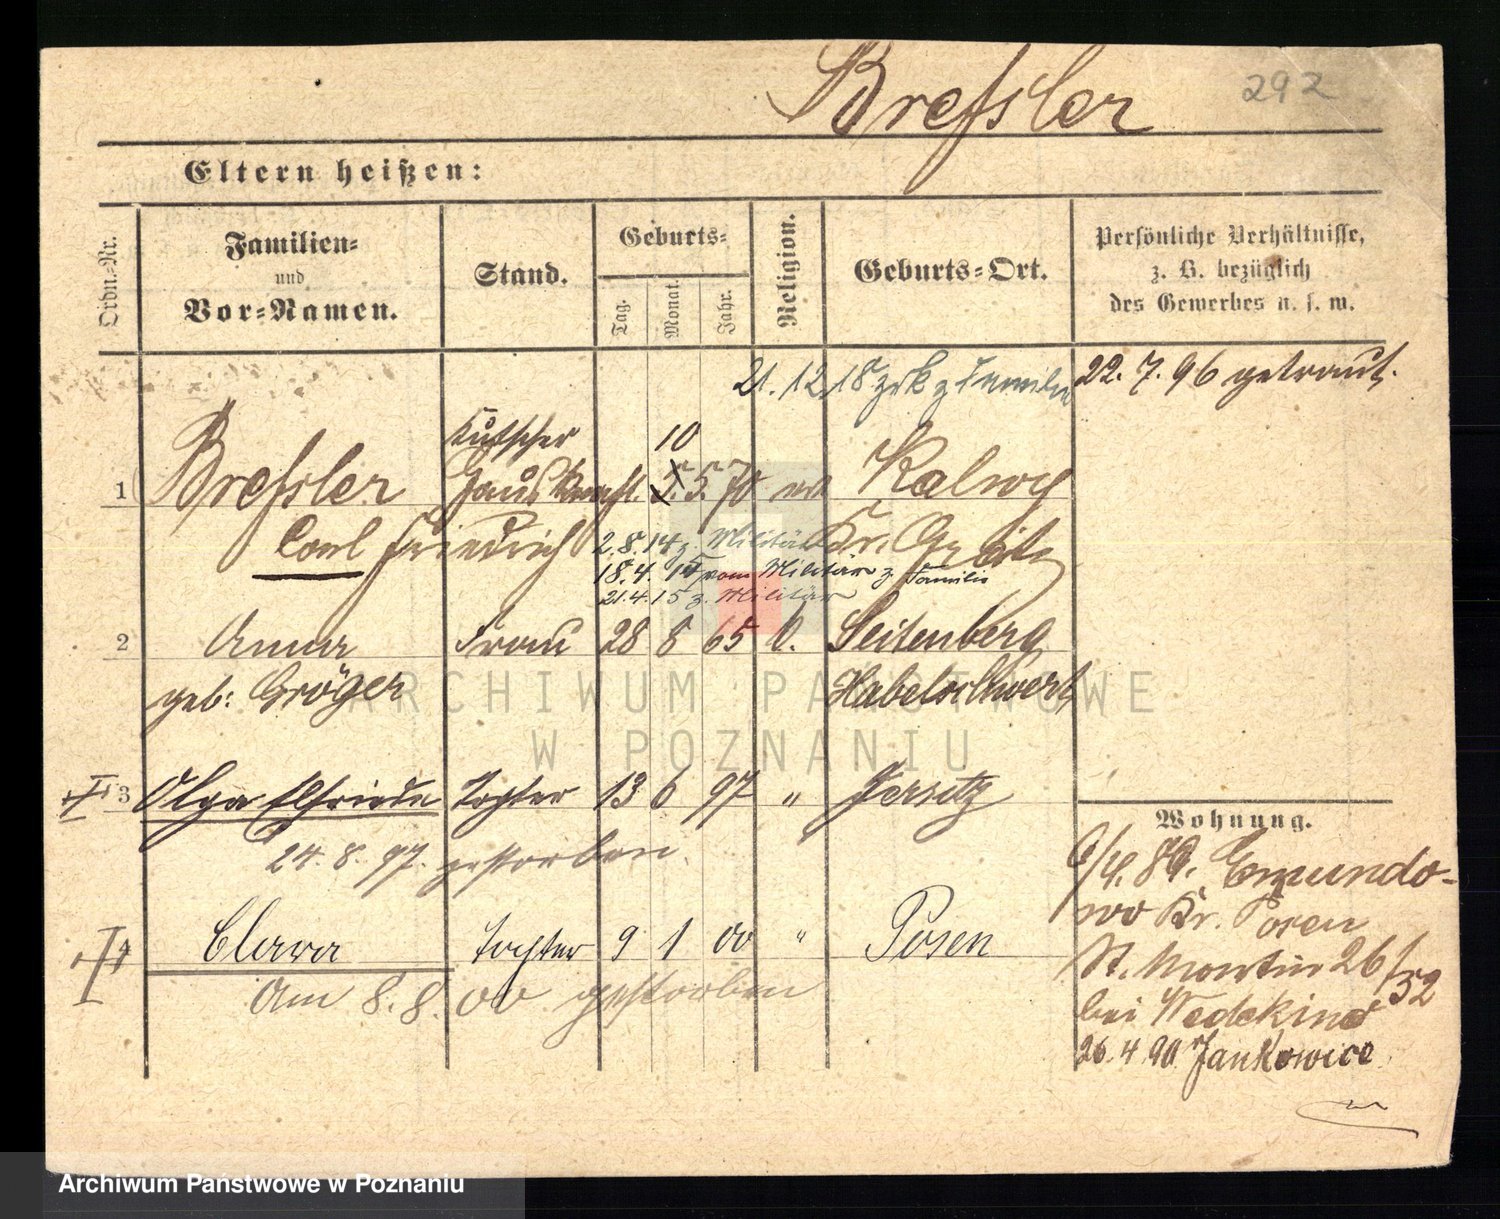 Breſsler
292
Eltern heißen:
Ordn.-Nr.
Familien-
und
Vor-Namen.
Stand.
Geburts-
Tag.
Monat.
Jahr.
Religion.
Geburts-Ort.
Persönliche Verhältnisse,
z. B. bezüglich
des Gewerbes u. s. w.
21. 12 18 zrk z Familie
22. 7. 96 getraut.
Kutscher
10
1 Breſsler Hausknecht. 5. 5. 70 ev Kalwy
Carl Friedrich Kr. Grätz
2. 8. 14 z. Militär
18. 4. 15 vom Militär z. Familie
21. 4. 15 z. Militär
2 Anna Frau 28 8 65 k. Seitenberg
geb: Gröger Habelschwert
ARCHIWUM PAŃSTWOWE
W POZNANIU
3 Olga Elfriede Tochter 13 6 97 " Jersitz
24. 8. 97. gestorben
4 Clara Tochter 9 1 00 " Posen
Am 8. 8. 00 gestorben
Wohnung.
6/4. 89. Edmundo-
wo Kr. Posen
St. Martin 26/32
bei Wedekind
26. 4. 90 Jankowice
Archiwum Państwowe w Poznaniu